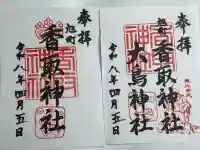 奉拝
旭町
香取神社
令和八年四月五日
奉拝
香取神社
大鳥神社
令和八年四月五日